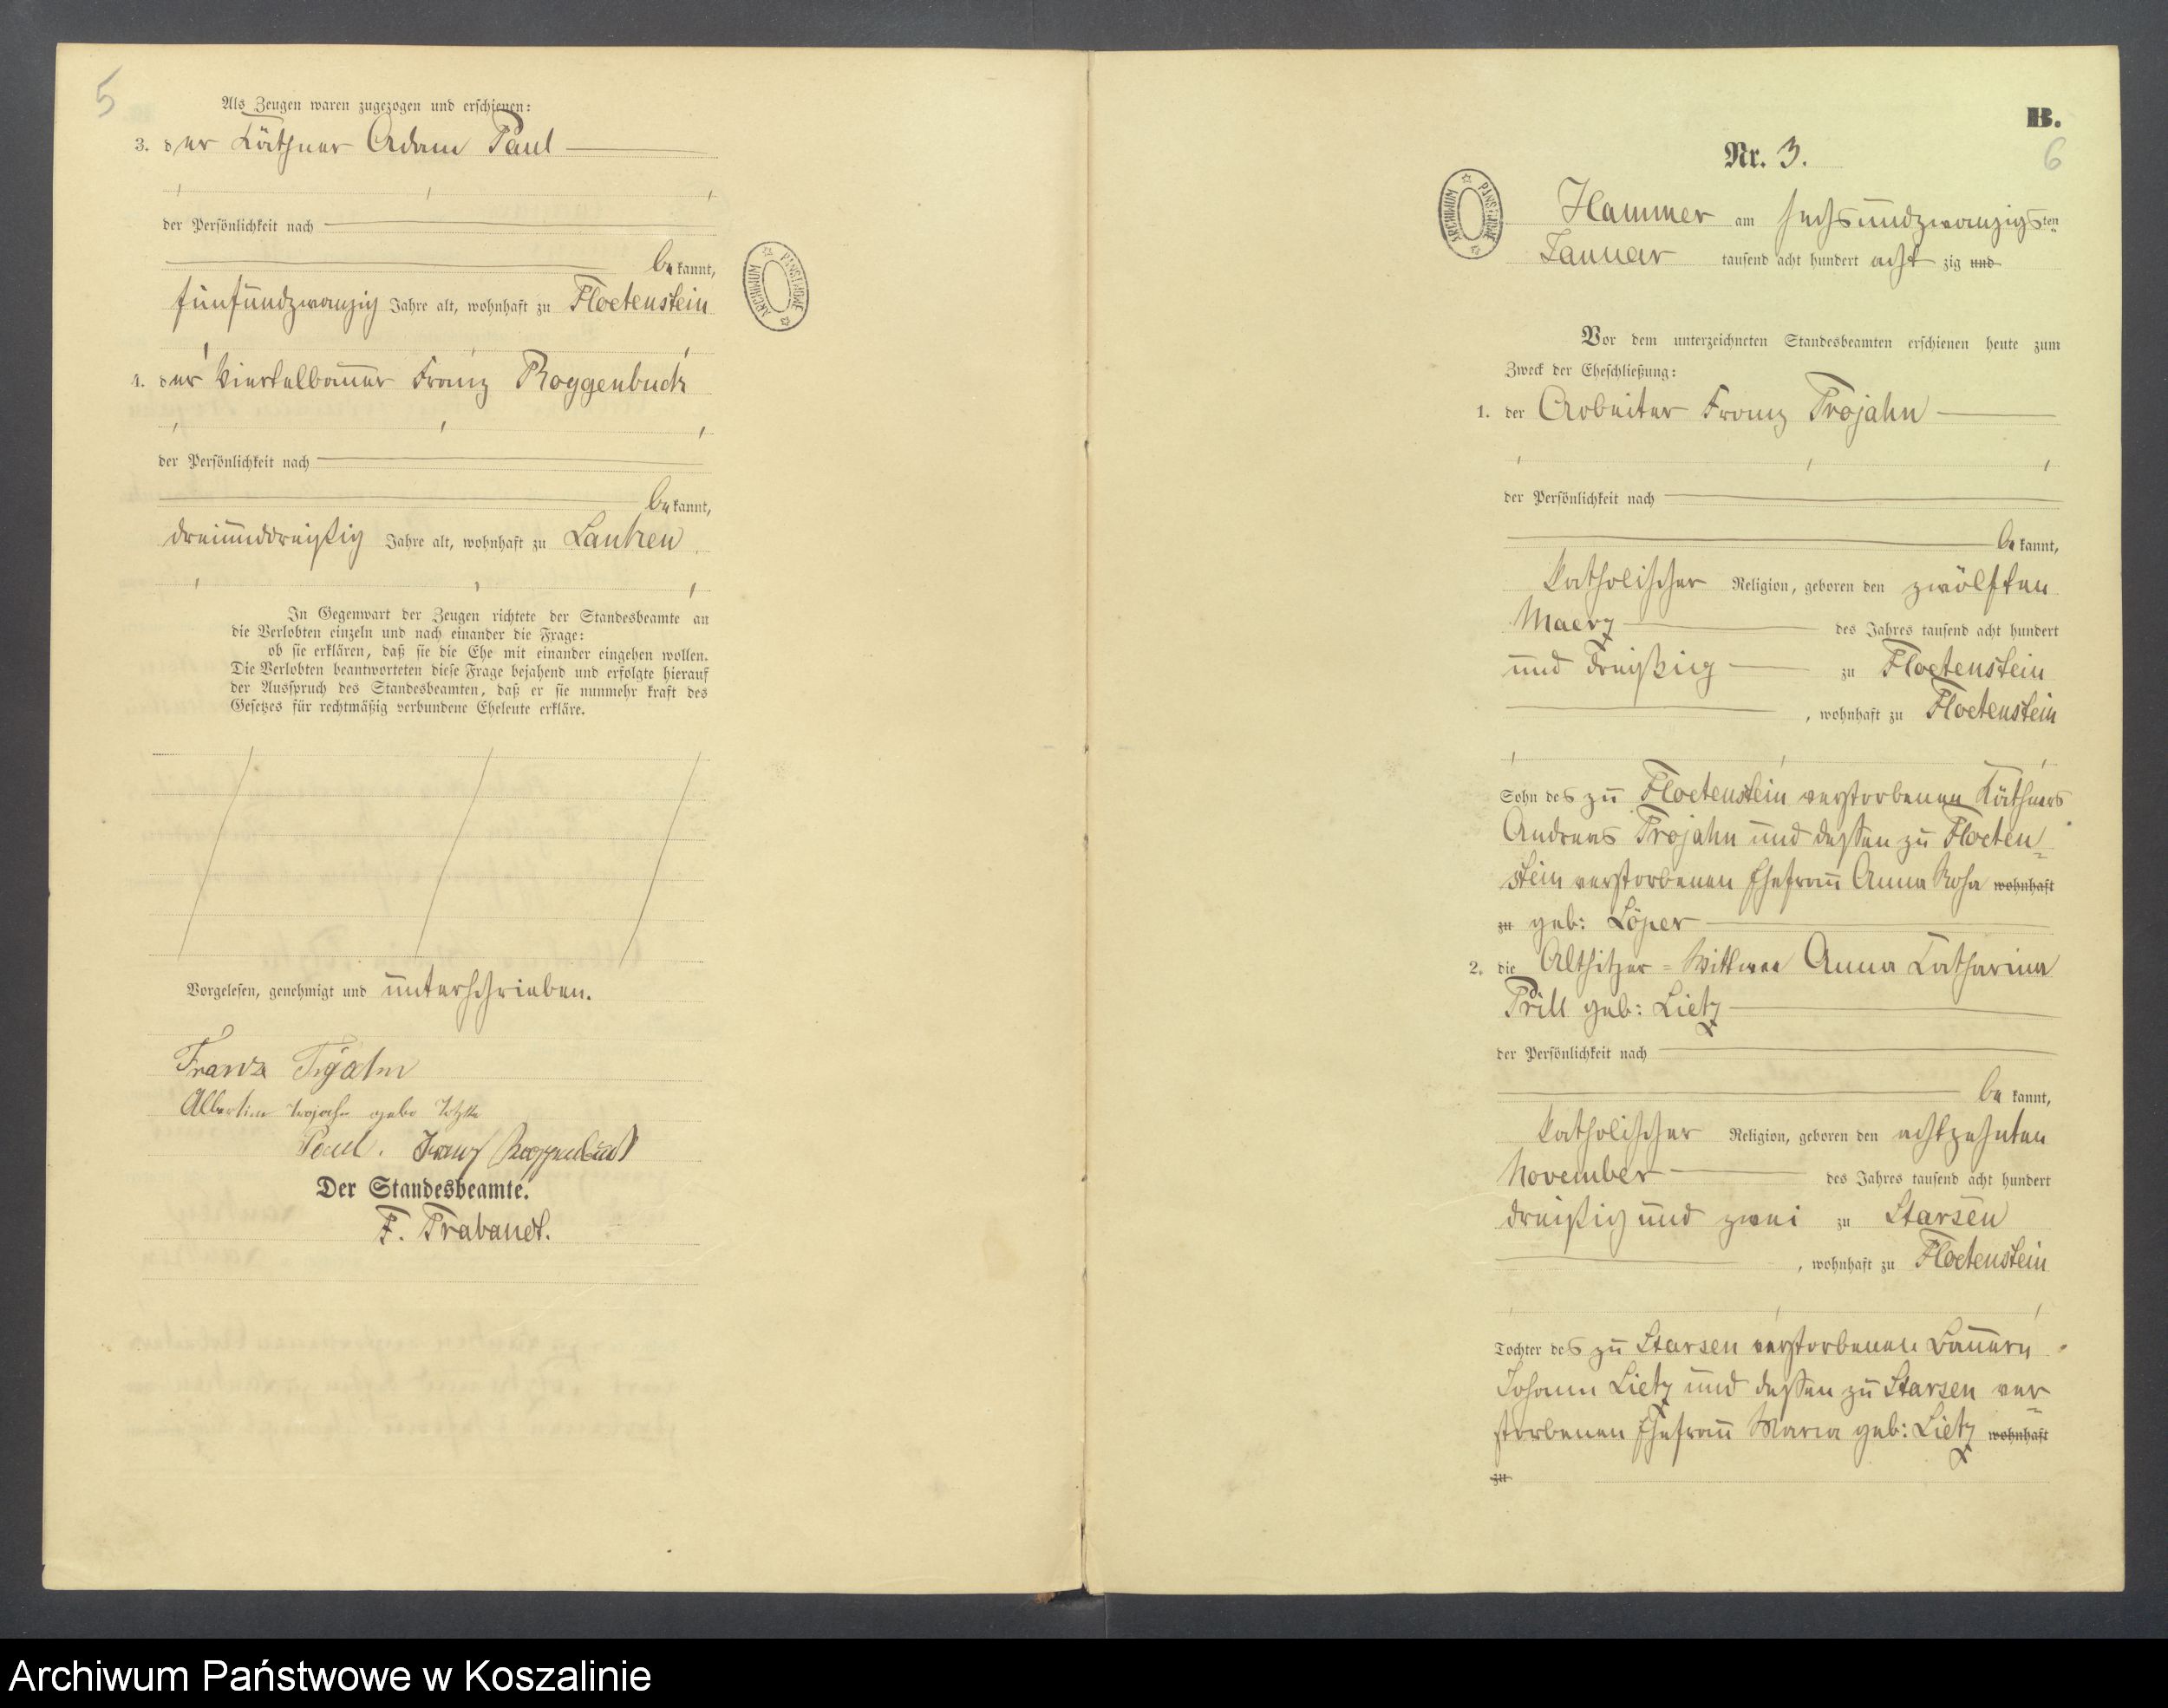 5
Als Zeugen waren zugezogen und erschienen:
3. der Käthner Adam Paul
der Persönlichkeit nach
bekannt,
fünfundzwanzig Jahre alt, wohnhaft zu Floetenstein
4. der Viertelbauer Franz Roggenbuck
der Persönlichkeit nach
bekannt,
dreiunddreißig Jahre alt, wohnhaft zu Lanken
In Gegenwart der Zeugen richtete der Standesbeamte an
die Verlobten einzeln und nach einander die Frage:
ob sie erklären, daß sie die Ehe mit einander eingehen wollen.
Die Verlobten beantworteten diese Frage bejahend und erfolgte hierauf
der Ausspruch des Standesbeamten, daß er sie nunmehr kraft des
Gesetzes für rechtmäßig verbundene Eheleute erkläre.
Vorgelesen, genehmigt und unterschrieben.
Franz
Albertine Trojahn gebo
Paul. Franz Roggenbuck
Der Standesbeamte.
F. Trabandt.
ARCHIWUM PAŃSTWOWE
B.
6
Nr. 3.
ARCHIWUM PAŃSTWOWE
Hammer am sechsundzwanzigsten
Januar tausend acht hundert achtzig und
Vor dem unterzeichneten Standesbeamten erschienen heute zum
Zweck der Eheschließung:
1. der Arbeiter Franz Trojahn
der Persönlichkeit nach
bekannt,
katholischer Religion, geboren den zwölften
Maerz des Jahres tausend acht hundert
und dreißig zu Floetenstein
, wohnhaft zu Floetenstein
Sohn des zu Floetenstein verstorbenen Käthners
Andreas Trojahn und dessen zu Floeten=
stein verstorbenen Ehefrau Anna Rosa wohnhaft
zu geb: Löper
2. die Altsitzer=Wittwe Anna Catharina
Prill geb: Lietz
der Persönlichkeit nach
bekannt,
katholischer Religion, geboren den achtzehnten
November des Jahres tausend acht hundert
dreißig und zwei zu Starsen
, wohnhaft zu Floetenstein
Tochter des zu Starsen verstorbenen Bauern
Johann Lietz und dessen zu Starsen ver=
storbenen Ehefrau Maria geb: Lietz wohnhaft
zu
Archiwum Państwowe w Koszalinie